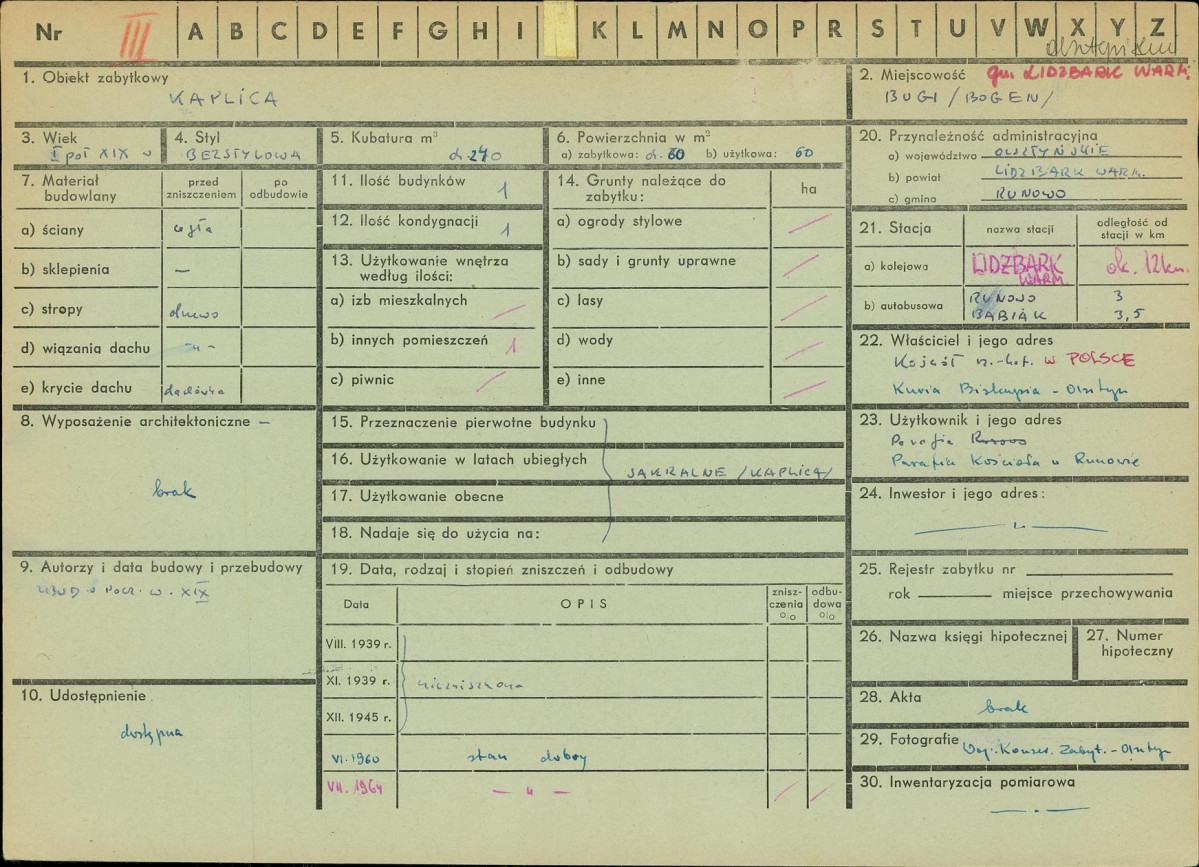 Nr III A B C D E F G H I K L M N O P R S T U V W X Y Z
1. Obiekt zabytkowy
KAPLICA
2. Miejscowość gm LIDZBARK WARM.
BUGI /BOGEN/
3. Wiek
I poł XIX w
4. Styl
BEZSTYLOWA
5. Kubatura m³
ok. 240
6. Powierzchnia w m²
a) zabytkowa: ok. 60 b) użytkowa: 60
20. Przynależność administracyjna
a) województwo OLSZTYŃSKIE
b) powiat LIDZBARK WARM.
c) gmina RUNOWO
7. Materiał budowlany
przed zniszczeniem
po odbudowie
a) ściany cegła
b) sklepienia —
c) stropy drewo
d) wiązania dachu -"-
e) krycie dachu dachówka
11. Ilość budynków 1
12. Ilość kondygnacji 1
13. Użytkowanie wnętrza
według ilości:
a) izb mieszkalnych
b) innych pomieszczeń 1
c) piwnic
14. Grunty należące do
zabytku:
ha
a) ogrody stylowe
b) sady i grunty uprawne
c) lasy
d) wody
e) inne
21. Stacja
nazwa stacji
odległość od
stacji w km
a) kolejowa LIDZBARK WARM. ok. 12 km.
b) autobusowa RUNOWO 3
BABIAK 3,5
22. Właściciel i jego adres
Kościół rz.-kat. w POLSCE
Kuria Biskupia - Olsztyn
8. Wyposażenie architektoniczne —
brak
15. Przeznaczenie pierwotne budynku
16. Użytkowanie w latach ubiegłych
SAKRALNE /KAPLICA/
17. Użytkowanie obecne
18. Nadaje się do użycia na:
23. Użytkownik i jego adres
Parafia
Parafia Kościoła w Runowie
24. Inwestor i jego adres:
9. Autorzy i data budowy i przebudowy
ZBUD. W POCZ. W. XIX
19. Data, rodzaj i stopień zniszczeń i odbudowy
Data
OPIS
znisz-
czenia
%
odbu-
dowa
%
VIII. 1939 r.
XI. 1939 r. niezniszczona
XII. 1945 r.
VI. 1960 stan dobry
VII. 1964 — " —
25. Rejestr zabytku nr
rok miejsce przechowywania
26. Nazwa księgi hipotecznej
27. Numer
hipoteczny
10. Udostępnienie
dostępna
28. Akta
brak
29. Fotografie Woj. Konser. Zabyt. - Olsztyn
30. Inwentaryzacja pomiarowa